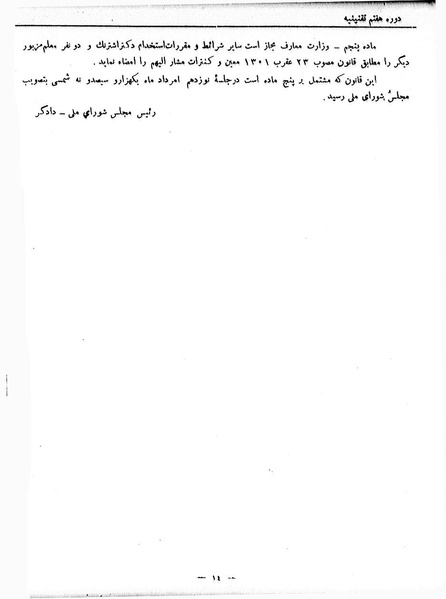 دوره هفتم تقنینیه
ماده پنجم – وزارت معارف مجاز است سایر شرائط و مقررات استخدام دکتر اشترنك و دو نفر معلم مزبور
دیگر را مطابق قانون مصوب ۲۳ عقرب ۱۳۰۱ معین و کنترات مشار الیهم را امضاء نماید .
این قانون که مشتمل بر پنج ماده است در جلسهٔ نوزدهم امرداد ماه یکهزارو سیصدو نه شمسی بتصویب
مجلس شورای ملی رسید .
رئیس مجلس شورای ملی – دادگر
— ١٤ —